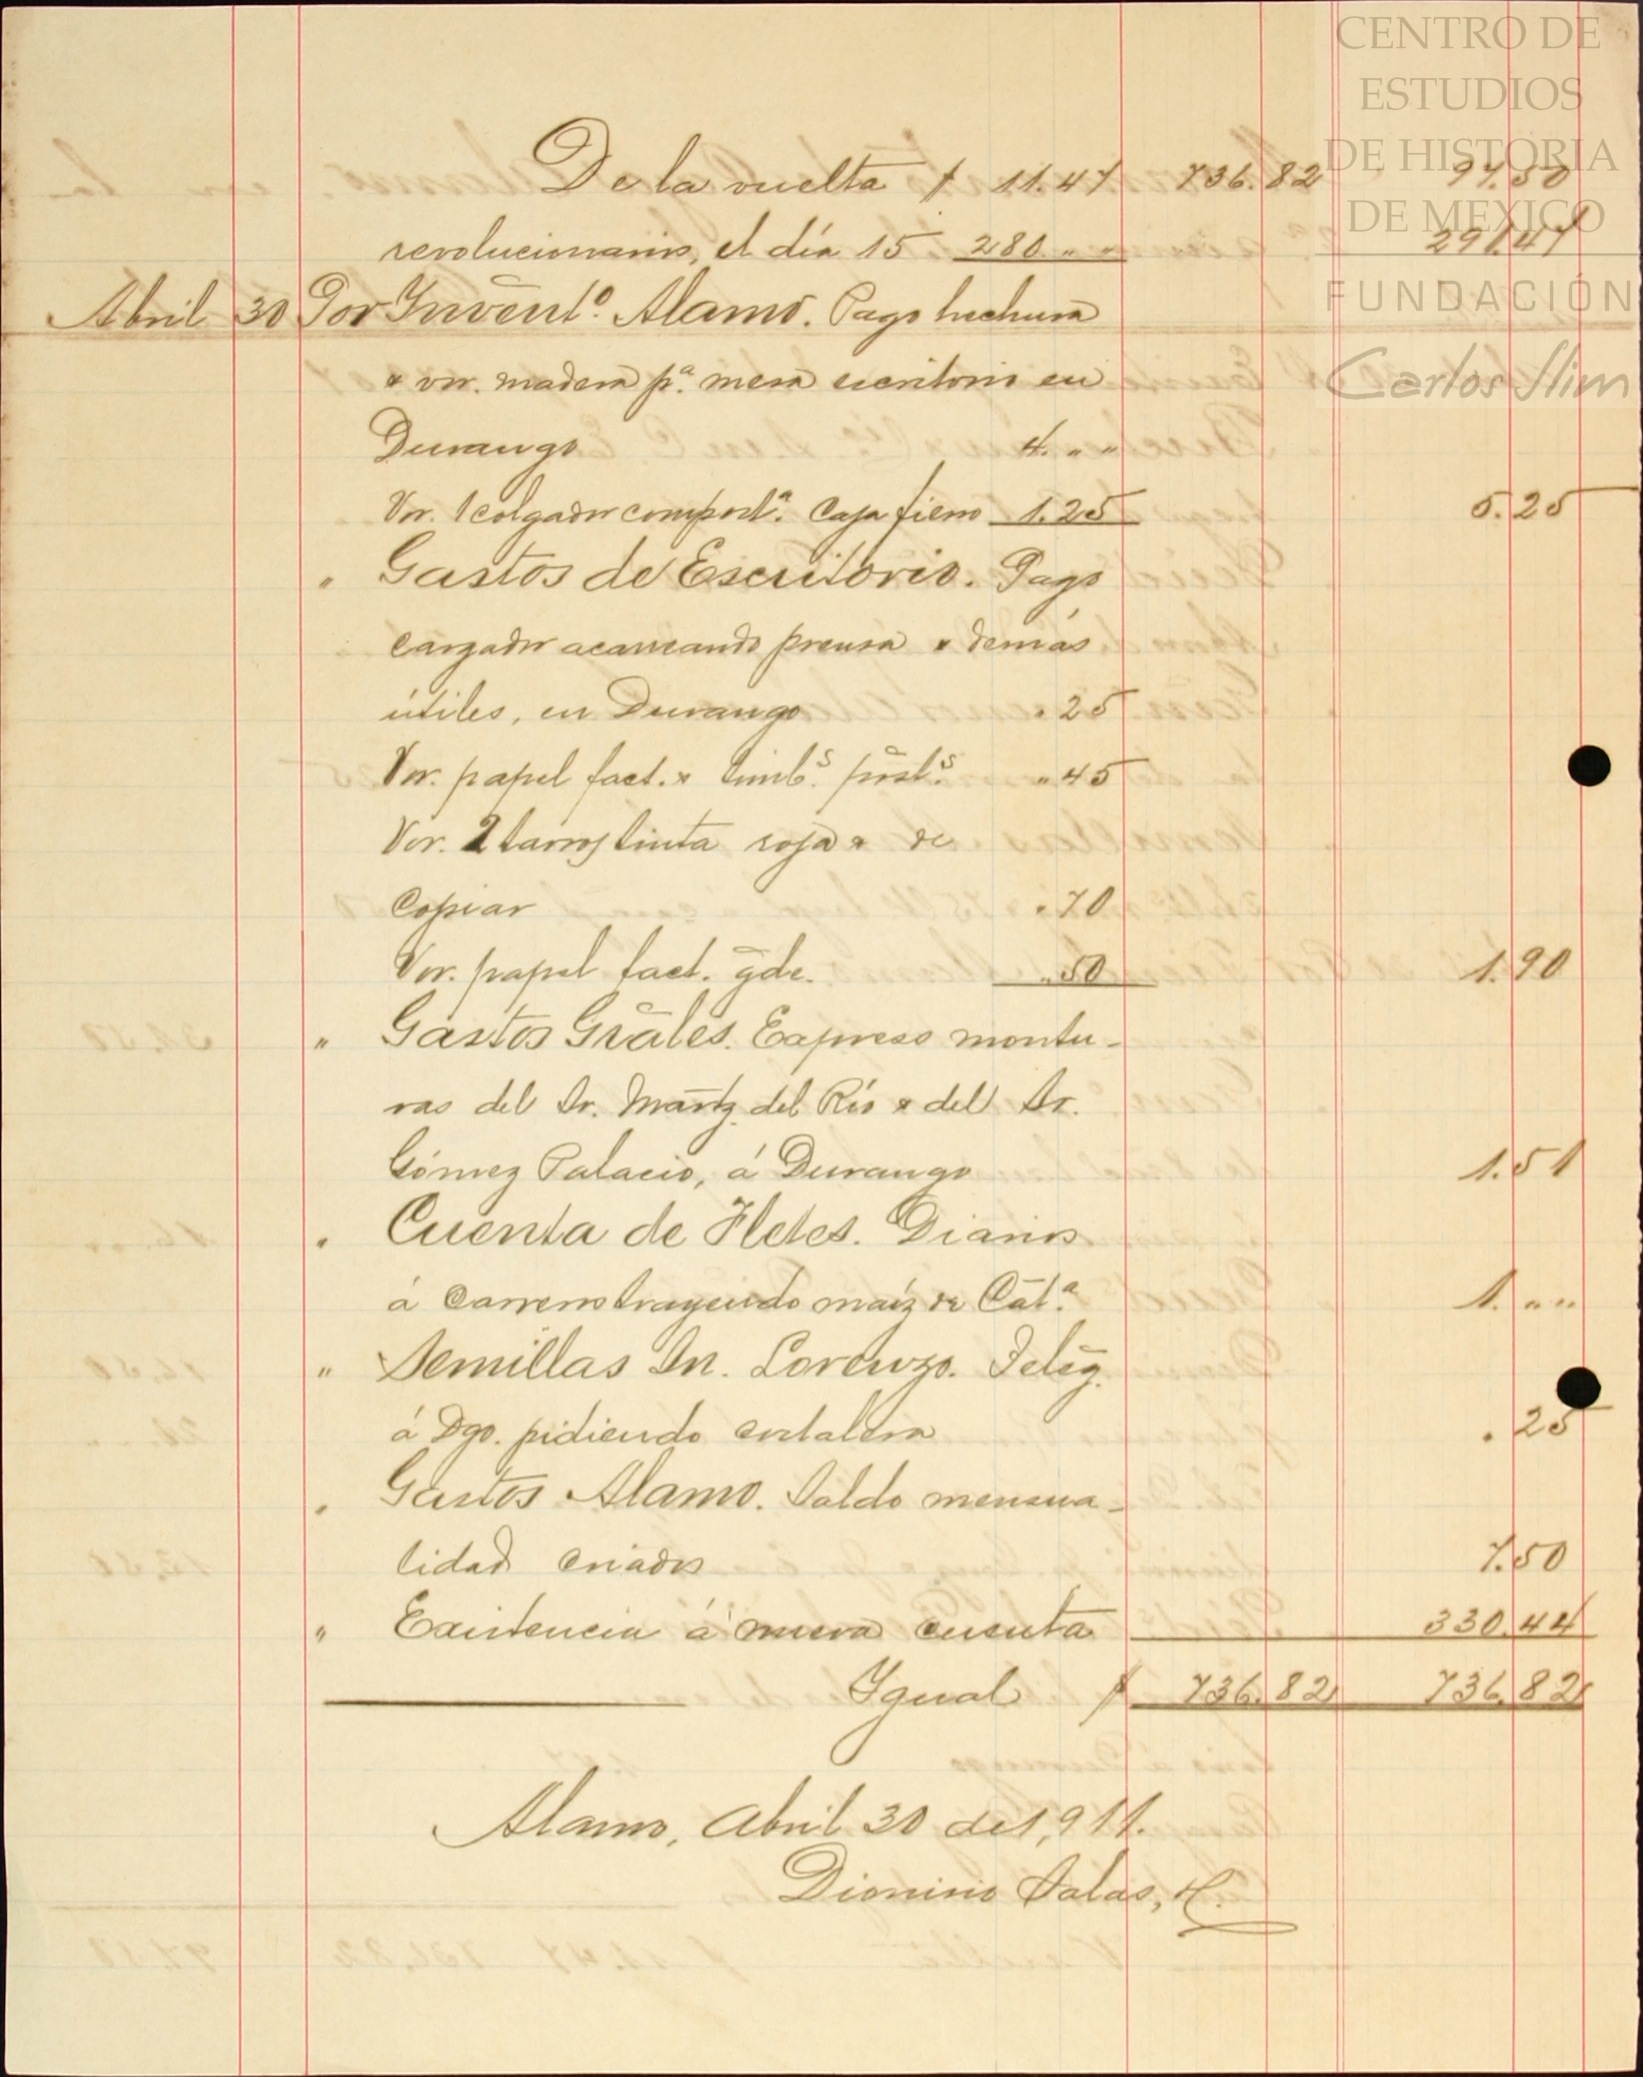 CENTRO DE
ESTUDIOS
DE HISTORIA
DE MEXICO
FUNDACIÓN
Carlos Slim
De la vuelta $ 11.47 736.82 97.50
revolucionarios, el día 15 280. " " 291.47
Abril 30 Por Invent.º Alamo. Pago hechura
& vor. madera p.ª mesa escritorio en
Durango 4. " "
Vor. 1 colgador comport.ª Caja fierro 1.25 5.25
" Gastos de Escritorio. Pago
cargador acarreando prensa & demás
útiles, en Durango " 25
Vor. papel fact. & timb.s post.s " 45
Vor. 2 tarros tinta roja & de
copiar " 70
Vor. papel fact. gde. " 50 1.90
" Gastos Grales. Expreso montu-
ras del Sr. Martz. del Río & del Sr.
Gómez Palacio, á Durango 1.51
" Cuenta de Fletes. Diarios
á carrero trayendo maíz de Cat.ª 1. " "
" Semillas Sn. Lorenzo. Teleg.
á Dgo. pidiendo . 25
" Gastos Alamo. Saldo mensua-
lidad criados 7.50
" Existencia á nueva cuenta 330.44
Igual $ 736.82 736.82
Alamo, Abril 30 de 1,911.
Dionisio Salas, H.